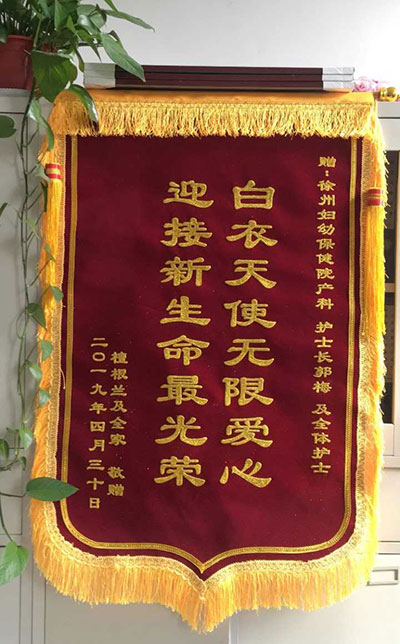 赠：徐州妇幼保健院产科 护士长郭梅 及全体护士
白衣天使无限爱心
迎接新生命最光荣
檀根兰及全家 敬赠
二〇一九年四月三十日